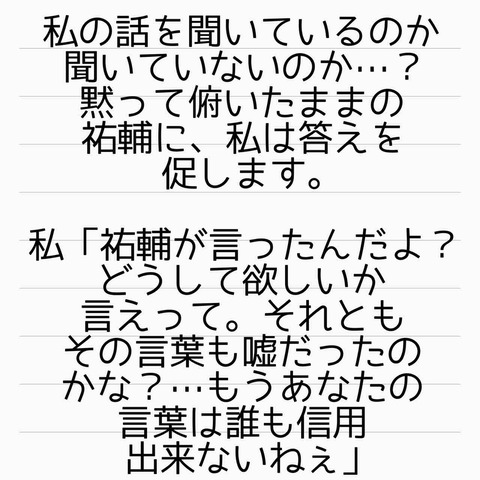 私の話を聞いているのか
聞いていないのか…？
黙って俯いたままの
祐輔に、私は答えを
促します。
私「祐輔が言ったんだよ？
どうして欲しいか
言えって。それとも
その言葉も嘘だったの
かな？…もうあなたの
言葉は誰も信用
出来ないねぇ」